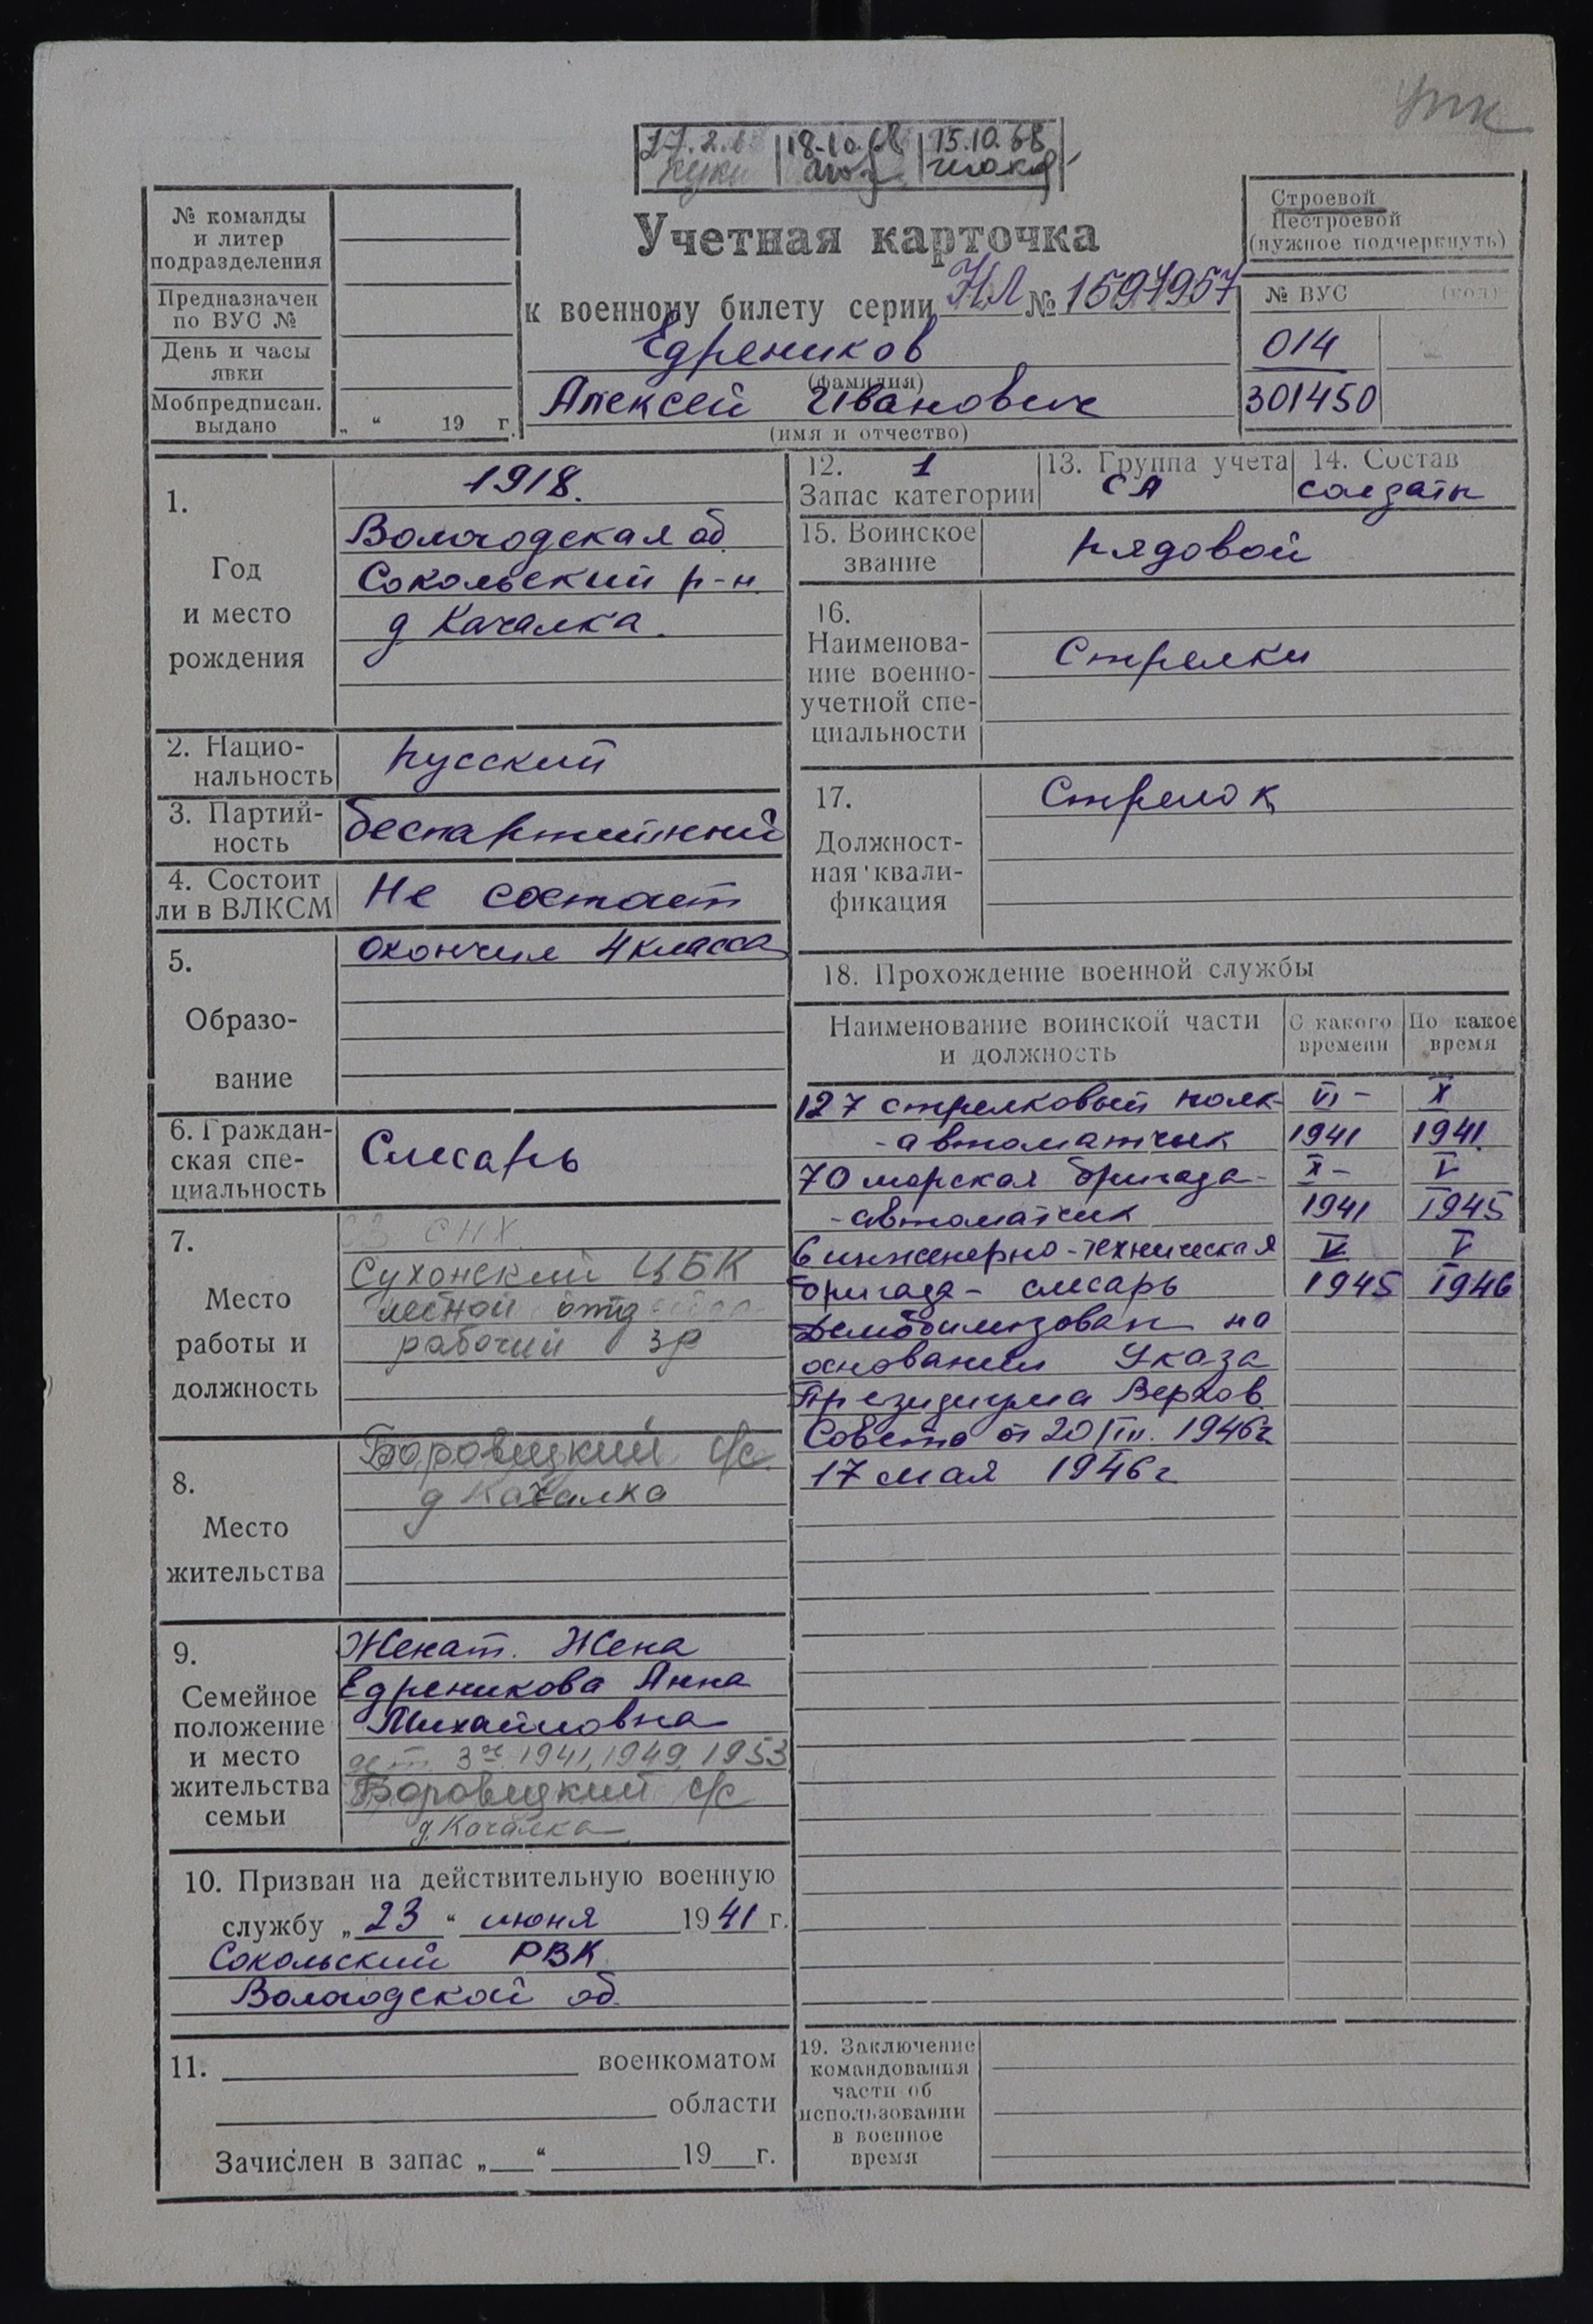 упк
18.10.68 15.10.68
№ команды
и литер
подразделения
Предназначен
по ВУС №
День и часы
явки
Мобпредписан.
выдано
„ “ 19 г.
Учетная карточка
к военному билету серии НЛ № 1594957
Едреников
(фамилия)
Алексей Иванович
(имя и отчество)
Строевой
Нестроевой
(нужное подчеркнуть)
№ ВУС (код)
014
301450
1.
Год
и место
рождения
1918.
Вологодская об
Сокольский р-н.
д Качалка.
2. Нацио-
нальность
русский
3. Партий-
ность
беспартийный
4. Состоит
ли в ВЛКСМ
Не состоит
5.
Образо-
вание
окончил 4 класса
6. Граждан-
ская спе-
циальность
Слесарь
7.
Место
работы и
должность
СНХ
Сухонский ЦБК
лесной отд
рабочий 3р
8.
Место
жительства
Боровецкий с/с.
д Качалка
9.
Семейное
положение
и место
жительства
семьи
Женат. Жена
Едреникова Анна
Михайловна
дет. 3ое 1941, 1949, 1953
Боровецкий с/с
д. Качалка
10. Призван на действительную военную
службу „23“ июня 1941 г.
Сокольский РВК
Вологодской об.
11. военкоматом
области
Зачислен в запас „ “ 19 г.
12. 1
Запас категории
13. Группа учета
СА
14. Состав
солдаты
15. Воинское
звание
рядовой
16.
Наименова-
ние военно-
учетной спе-
циальности
Стрелки
17.
Должност-
ная квали-
фикация
Стрелок
18. Прохождение военной службы
Наименование воинской части
и должность
С какого
времени
По какое
время
127 стрелковый полк- VI - X
- автоматчик 1941 1941
70 морская бригада- X - V
- автоматчик 1941 1945
6 инженерно-техническая V V
бригада - слесарь 1945 1946
Демобилизован на
основании Указа
Президиума Верхов.
Совета от 20/III. 1946г
17 мая 1946 г
19. Заключение
командования
части об
использовании
в военное
время